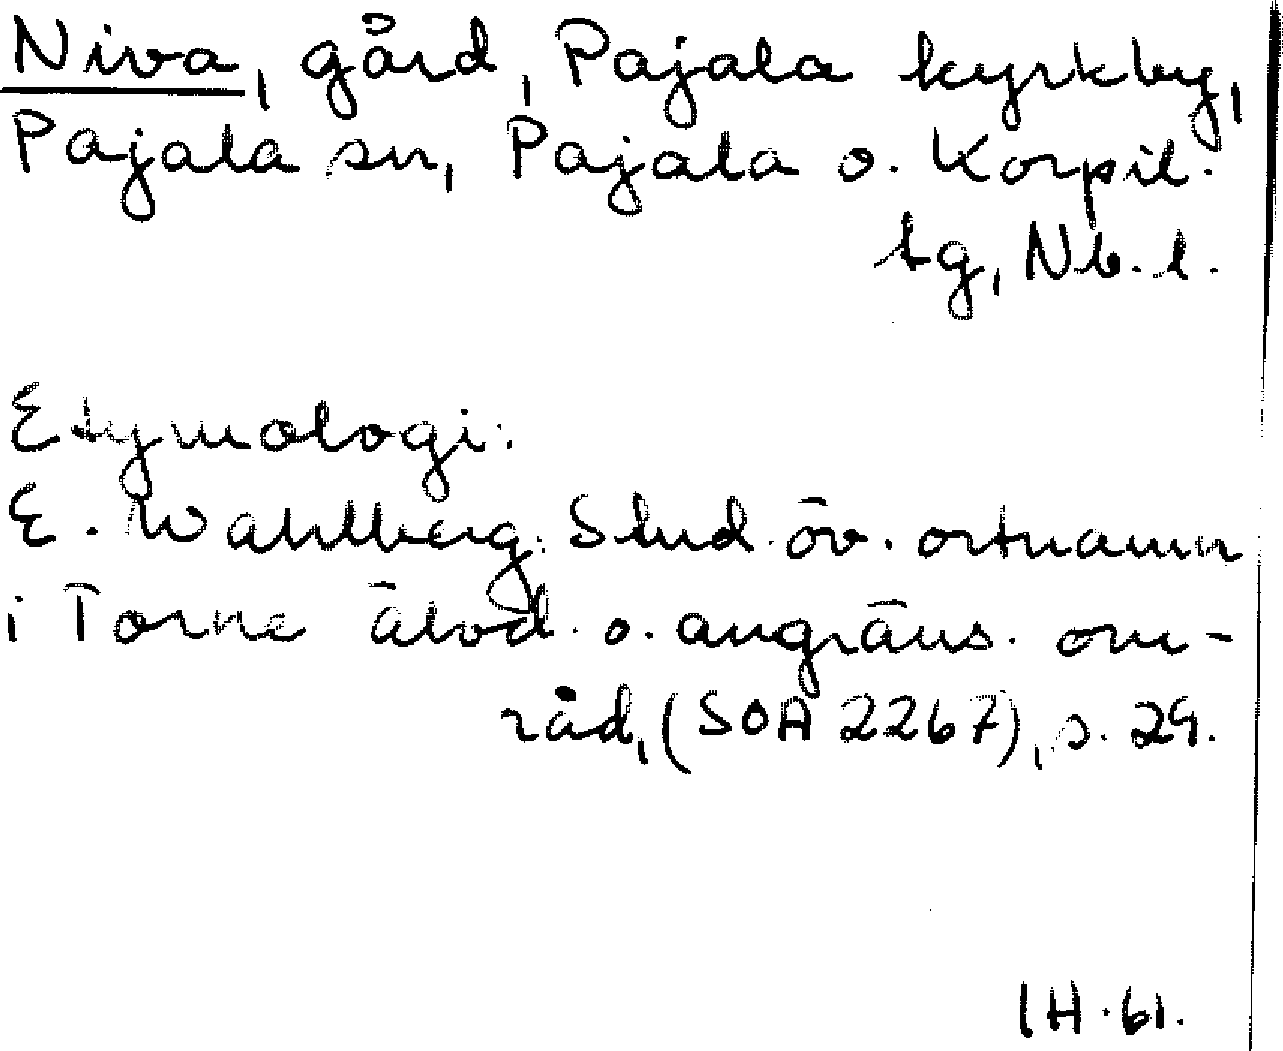 Niva, gård, Pajala kyrkby,
Pajala sn, Pajala o. Korpil.
tg, Nb. l.
Etymologi:
E. Wahlberg: Stud. öv. ortnamn
i Torne älvd. o. angräns. om-
råd, (SOA 2267), s. 29.
IH. 61.